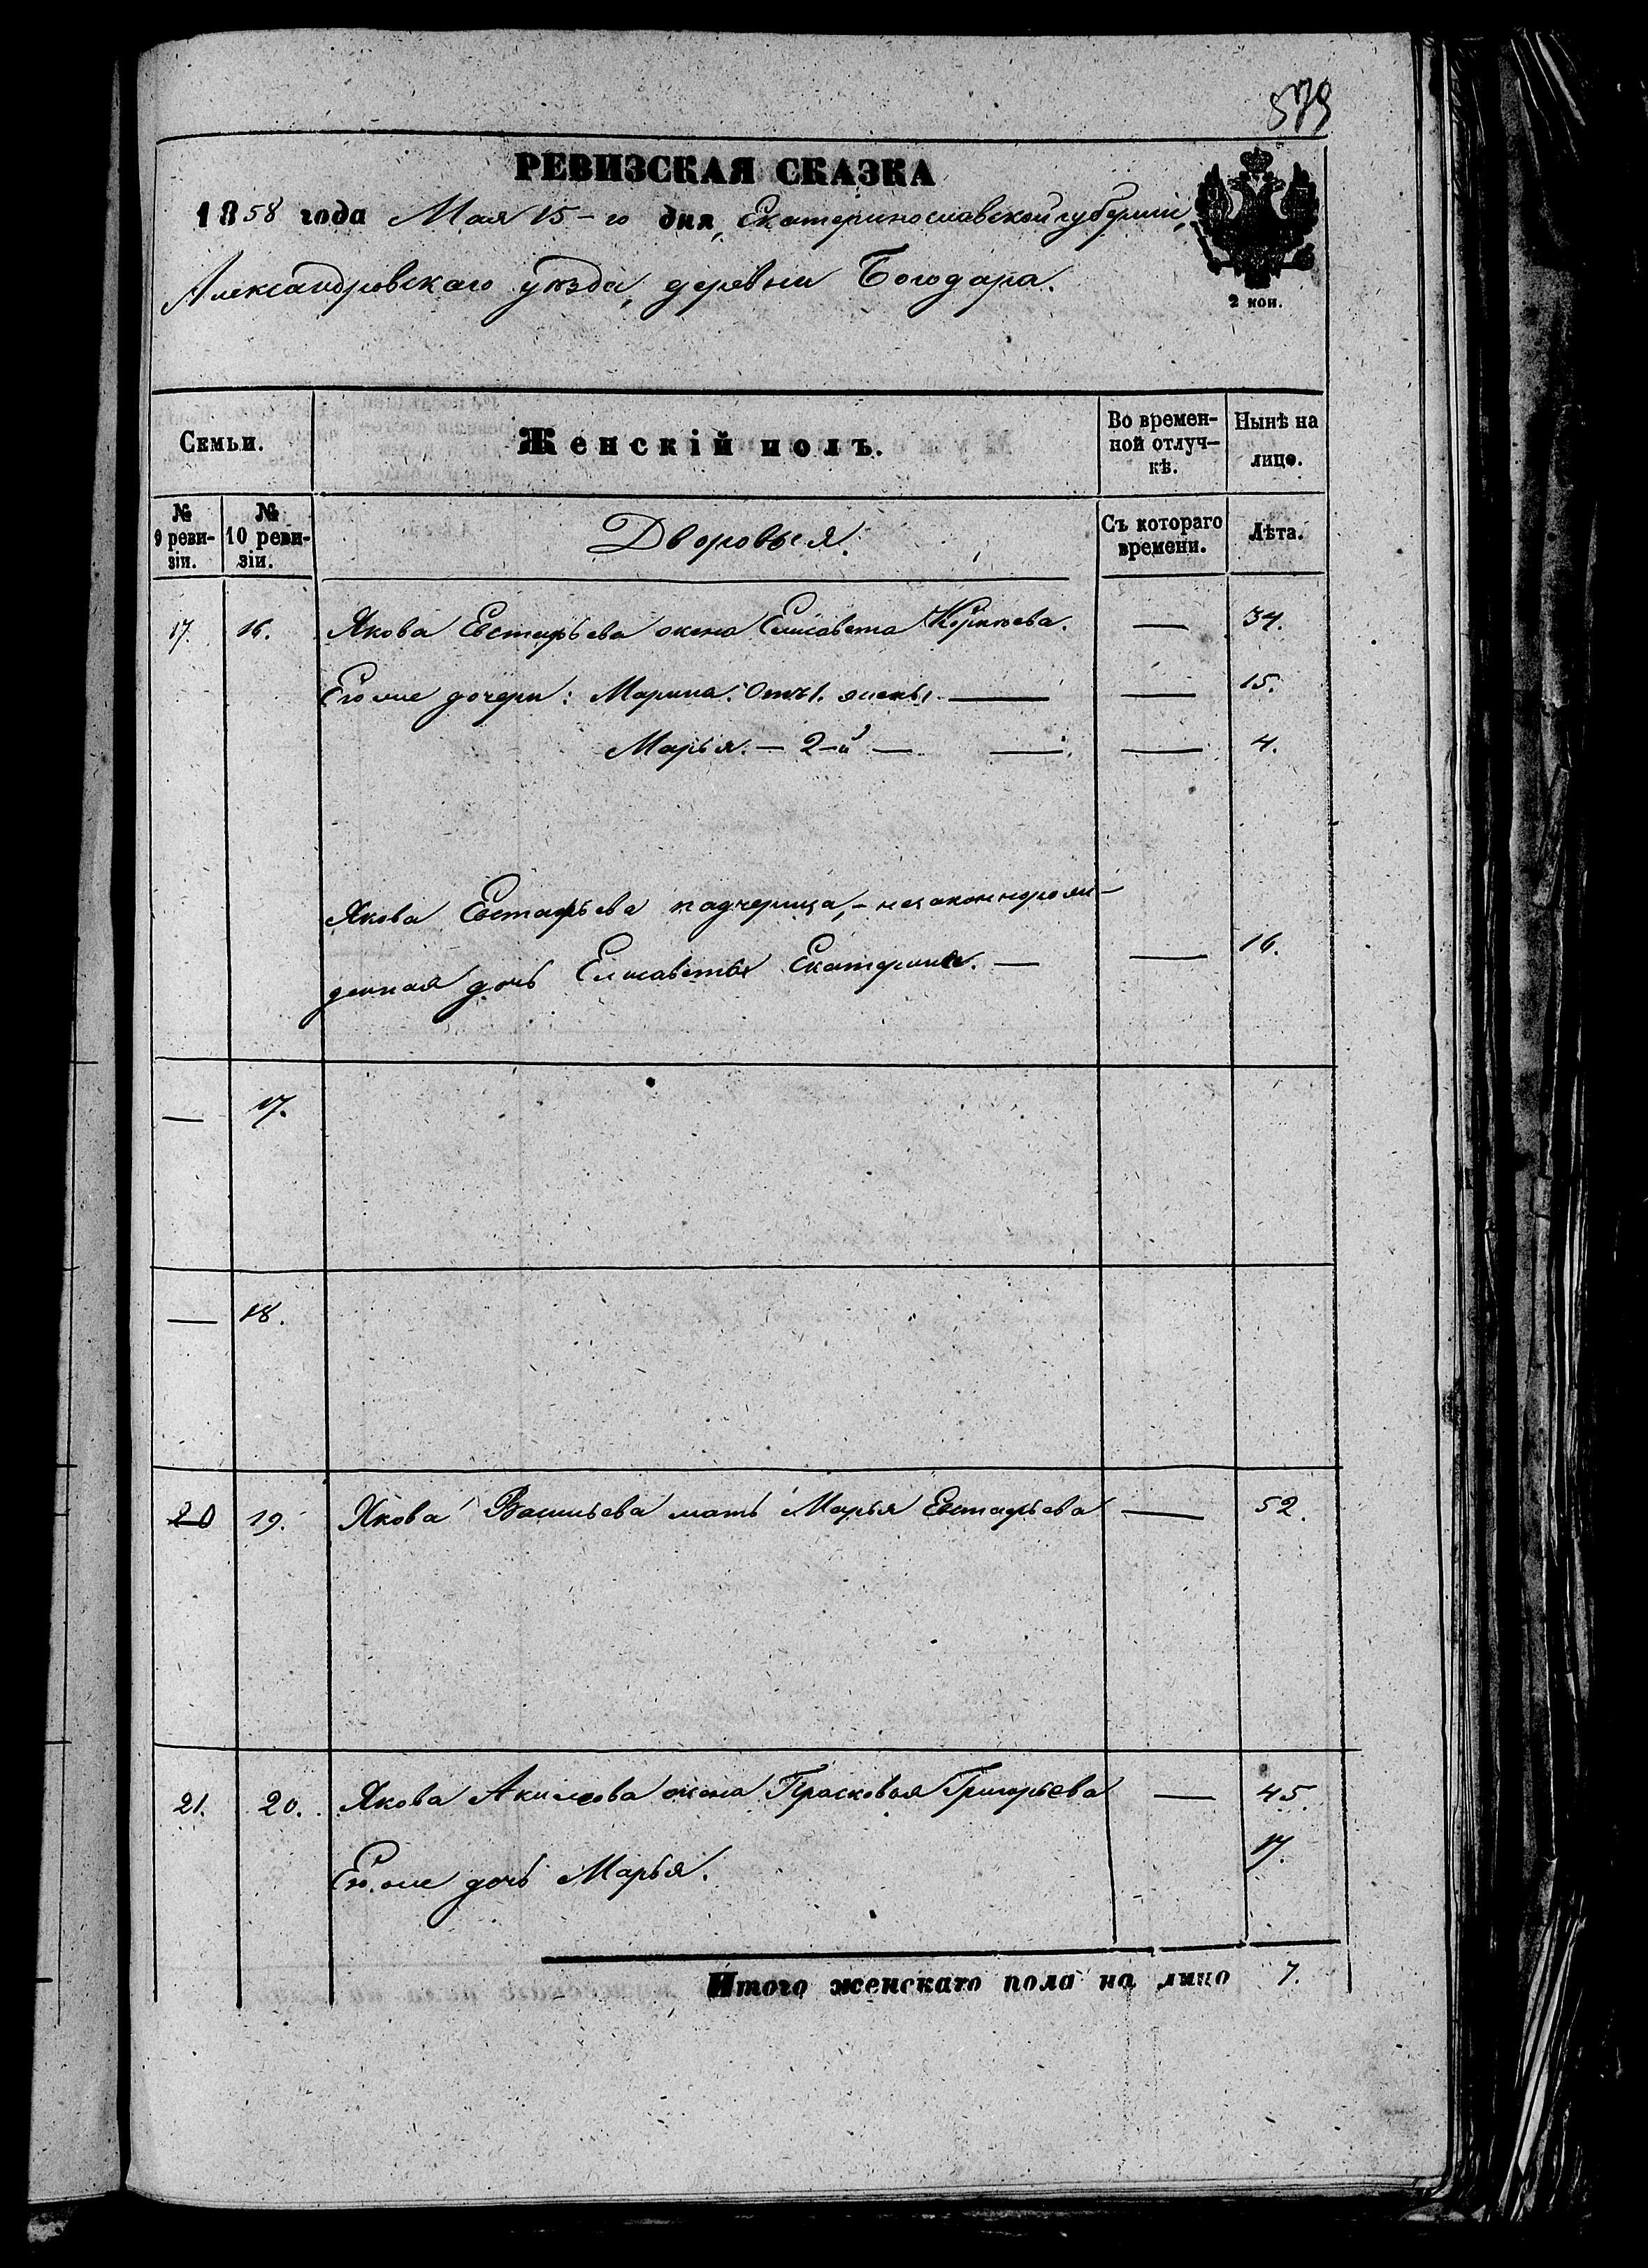 579
РЕВИЗСКАЯ СКАЗКА
1858 года Мая 15-го дня, Екатеринославской губерніи,
Александровскаго уѣзда, деревни Богодара.
2 коп.
Семьи. Женскій полъ. Во времен- Нынѣ на
ной отлуч- лицо.
кѣ.
№ № Дворовыя. Съ котораго Лѣта.
9 реви- 10 реви- времени.
зіи. зіи.
17. 16. Якова Евстафьева жена Елисавета — 34.
Его же дочери: Марина. Отъ 1. жены — — 15.
Марья. — 2-й — — — 4.
Якова Евстафьева падчерица, - незаконнорож-
денная дочь Елисаветы Екатерина. — — 16.
— 17.
— 18.
20 19. Якова Васильева мать Марья Евстафьева — 52.
21. 20. Якова Акимова жена Прасковья Григорьева — 45.
Его же дочь Марья. 17.
Итого женскаго пола на лицо 7.